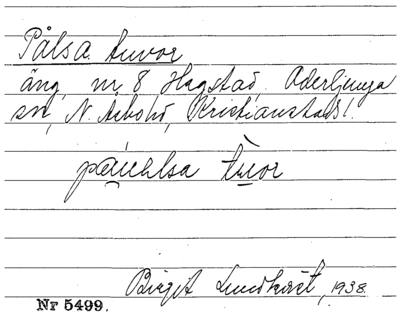 Pålsa tuvor
äng, nr 8 Hagstad, Oderljunga
sn, N. Åsbohd, Kristianstads l.
tuvor
Birgit Lundkvist, 1938.
Nr 5499.